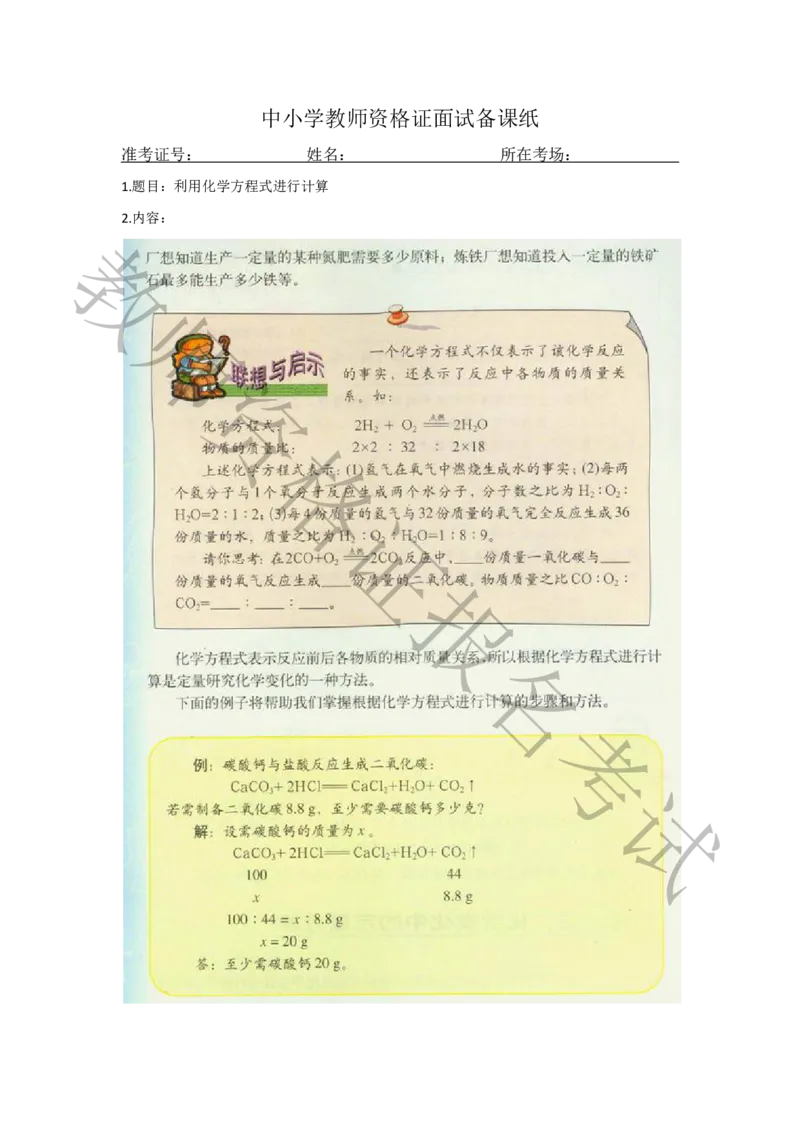 中小学教师资格证面试备课纸
准考证号： 姓名： 所在考场：
1.题目：利用化学方程式进行计算
2.内容：
厂想知道生产一定量的某种氮肥需要多少原料；炼铁厂想知道投入一定量的铁矿
石最多能生产多少铁等。
联想与启示
一个化学方程式不仅表示了该化学反应
的事实，还表示了反应中各物质的质量关
系。如：
化学方程式： 2H₂ + O₂ =点燃= 2H₂O
物质的质量比： 2×2 : 32 : 2×18
上述化学方程式表示：(1)氢气在氧气中燃烧生成水的事实；(2)每两
个氢分子与1个氧分子反应生成两个水分子，分子数之比为H₂:O₂:
H₂O=2:1:2；(3)每4份质量的氢气与32份质量的氧气完全反应生成36
份质量的水，质量之比为H₂:O₂:H₂O=1:8:9。
请你思考：在2CO+O₂ =点燃= 2CO₂反应中，____份质量一氧化碳与____
份质量的氧气反应生成____份质量的二氧化碳。物质质量之比CO:O₂:
CO₂=____:____:____。
化学方程式表示反应前后各物质的相对质量关系，所以根据化学方程式进行计
算是定量研究化学变化的一种方法。
下面的例子将帮助我们掌握根据化学方程式进行计算的步骤和方法。
例：碳酸钙与盐酸反应生成二氧化碳：
CaCO₃+ 2HCl══CaCl₂+H₂O+ CO₂↑
若需制备二氧化碳8.8 g，至少需要碳酸钙多少克？
解：设需碳酸钙的质量为x。
CaCO₃+ 2HCl══CaCl₂+H₂O+ CO₂↑
100 44
x 8.8 g
100:44 = x:8.8 g
x = 20 g
答：至少需碳酸钙20 g。
教师资格证报名考试